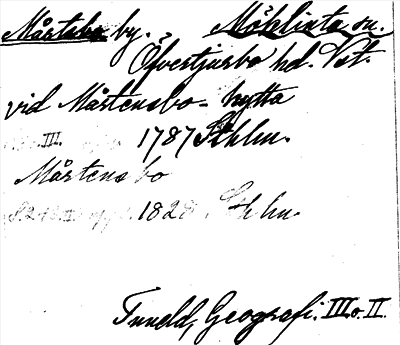 Mårtsbo by. Möklinta sn.
Öfvertjurbo hd. Vst.
vid Mårtensbo - hytta
III. 1787 Sthlm.
Mårtensbo
1828 Sthlm.
Tuneld, Geografi. III o. II.